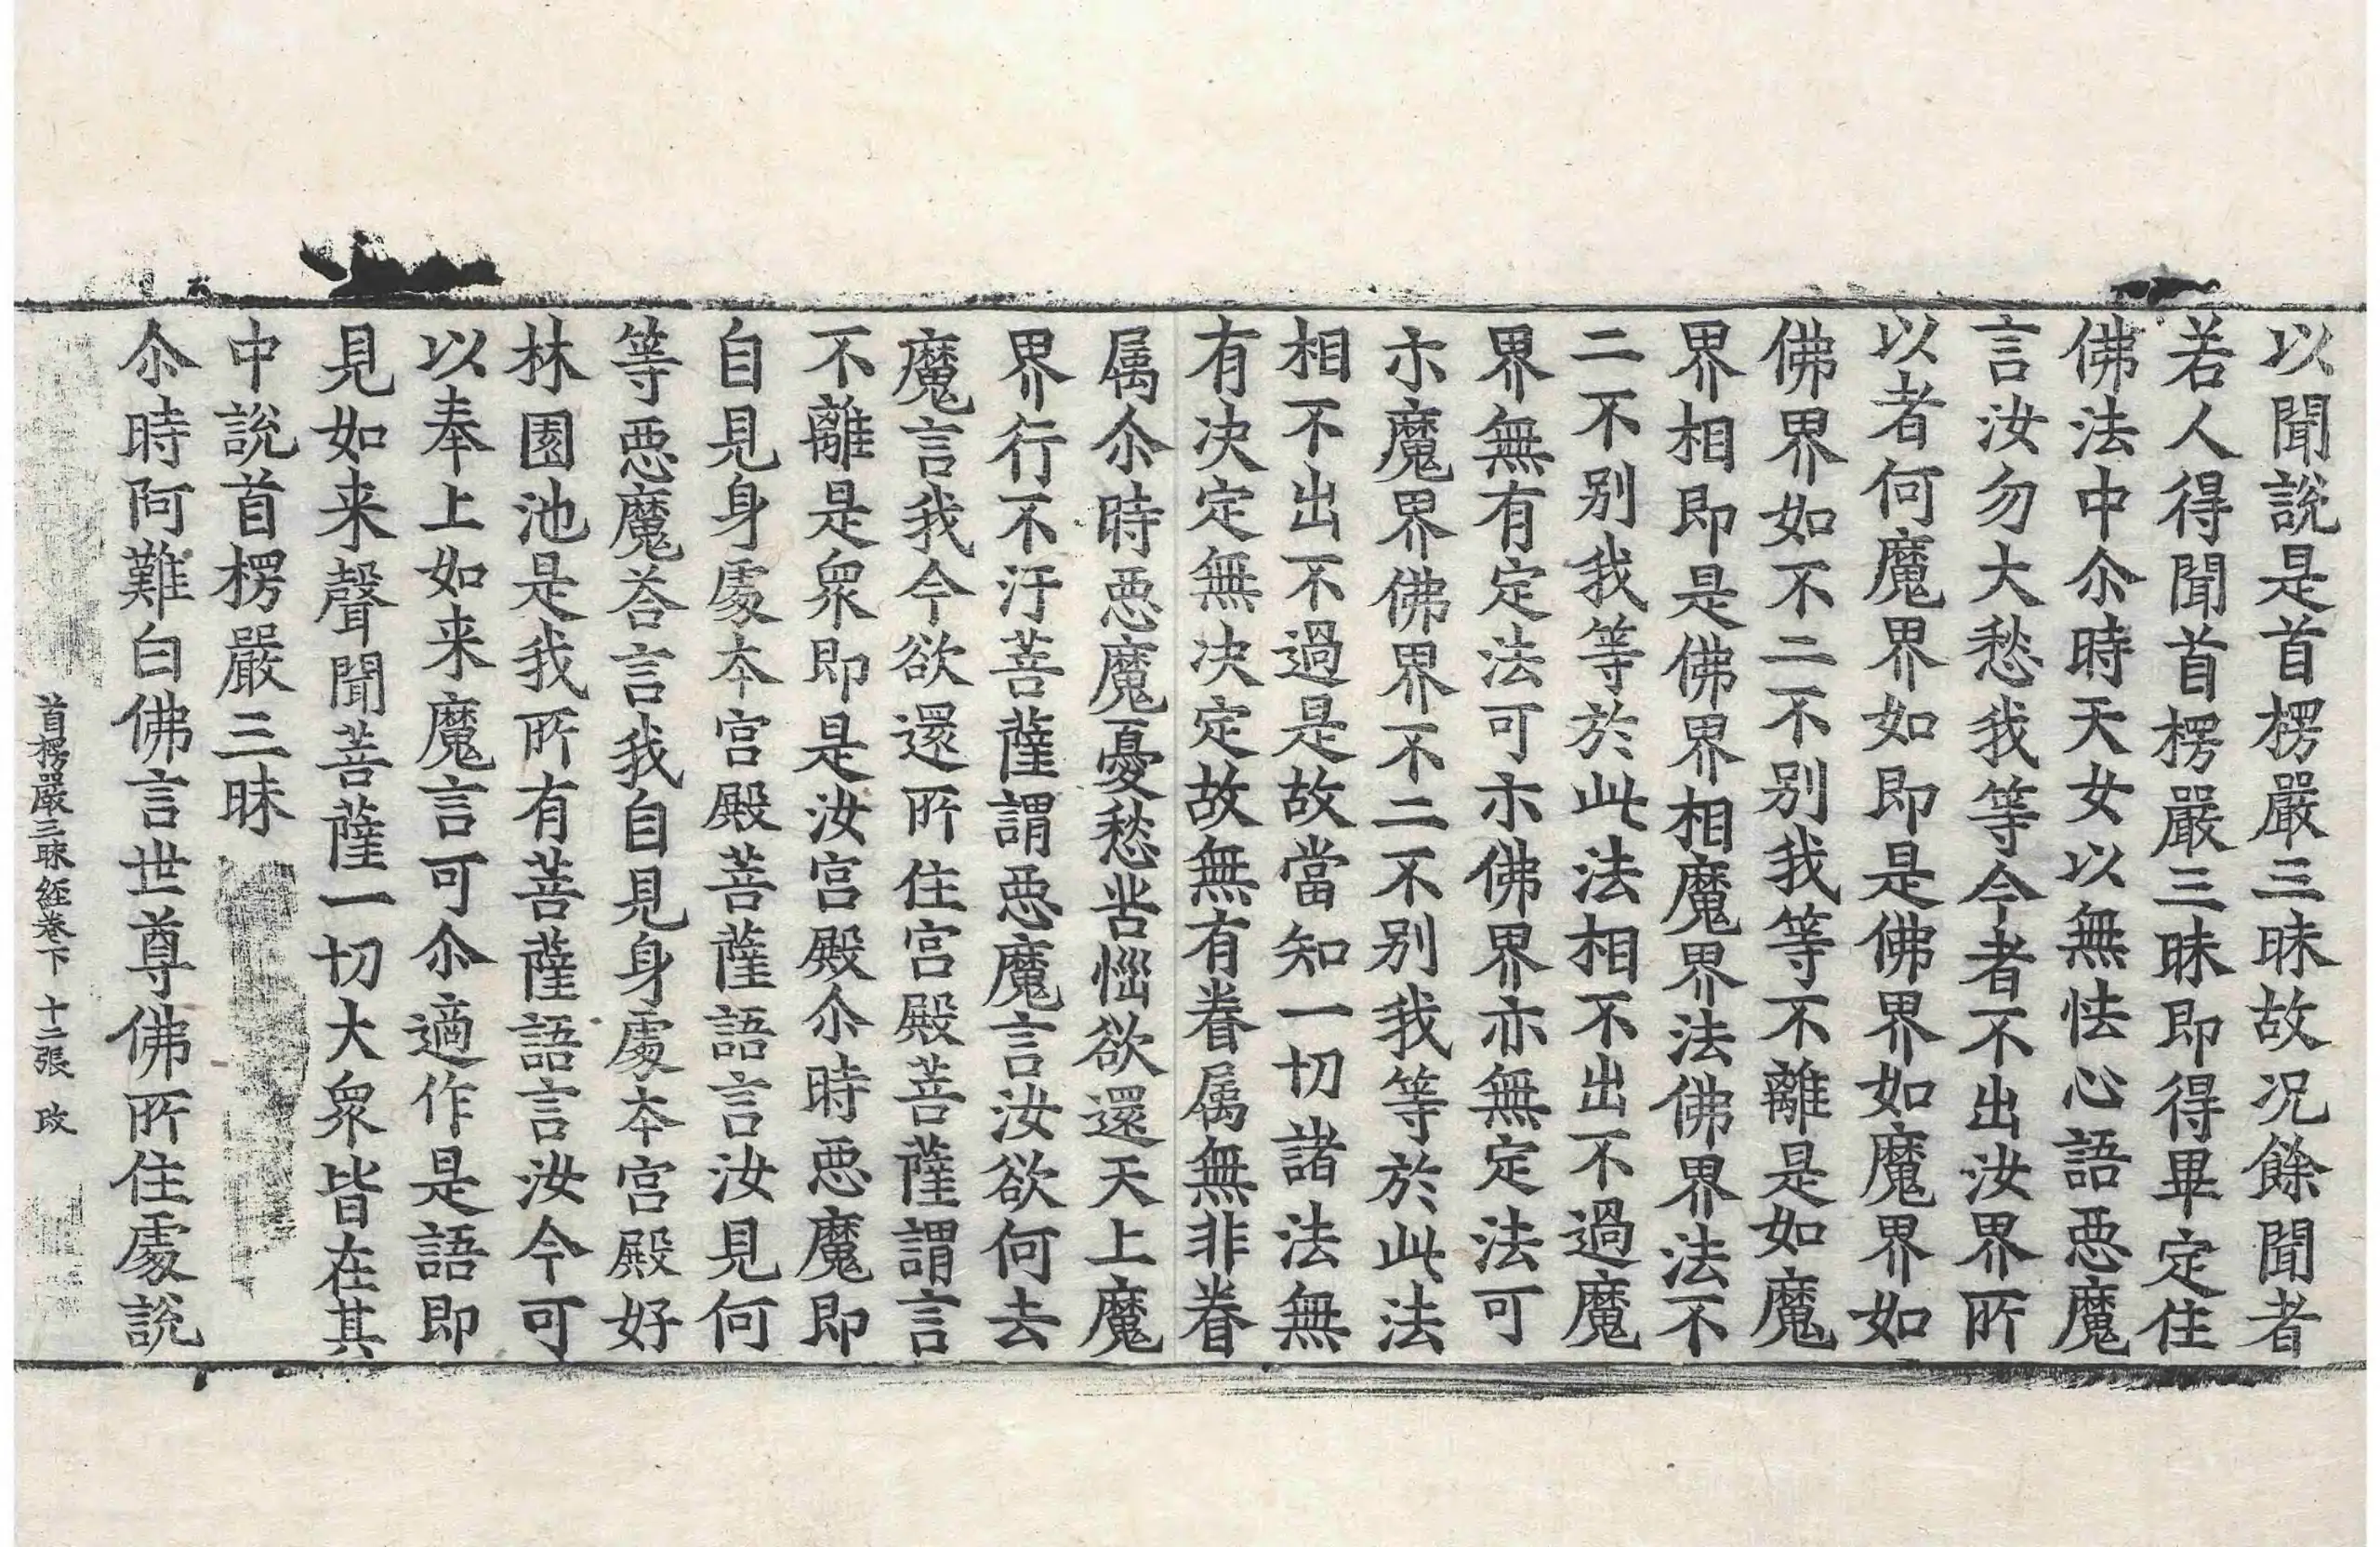 以聞說是首楞嚴三昧故況餘聞者
若人得聞首楞嚴三昧即得畢定住
佛法中尒時天女以無怯心語悪魔
言汝勿大愁我等今者不出汝界所
以者何魔界如即是佛界如魔界如
佛界如不二不别我等不離是如魔
界相即是佛界相魔界法佛界法不
二不别我等於此法相不出不過魔
界無有定法可示佛界亦無定法可
示魔界佛界不二不别我等於此法
相不出不過是故當知一切諸法無
有决定無决定故無有眷属無非眷
属尒時悪魔憂愁苦惱欲還天上魔
界行不汙菩薩謂悪魔言汝欲何去
魔言我今欲還所住宮殿菩薩謂言
不離是衆即是汝宮殿尒時悪魔即
自見身處本宮殿菩薩語言汝見何
等悪魔荅言我自見身處本宮殿好
林園池是我所有菩薩語言汝今可
以奉上如来魔言可尒適作是語即
見如来聲聞菩薩一切大衆皆在其
中說首楞嚴三昧
尒時阿難白佛言世尊佛所住處說
首楞嚴三昧經卷下 十二張 改